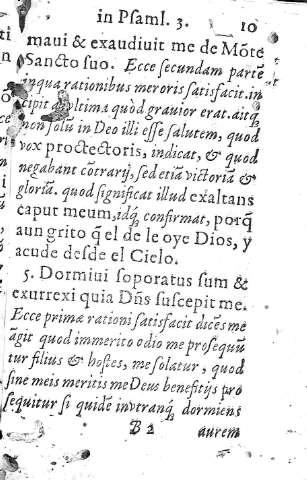 in Psaml. 3. 10
maui & exaudiuit me de Mõte
Sancto suo. Ecce secundam partẽ
inqua rationibus meroris satisfacit. in
cipit ab vltima quòd grauior erat. aitq;
non solũ in Deo illi esse salutem, quod
vox proctectoris, indicat, & quod
negabant cõtrarij, sed etiã victoriã &
gloriã. quod significat illud exaltans
caput meum, idq; confirmat, porq̃
a un grito q̃ el de le oye Dios, y
acude desde el Cielo.
5. Dormiui soporatus sum &
exurrexi quia Dñs suscepit me.
Ecce primæ rationi satisfacit dicẽs me
ãgit quod immerito odio me prosequũ
tur filius & hostes, me solatur, quod
sine meis meritis me Deus benefitijs pro
sequitur si quidẽ invtranq; dormiens
B 2 aurem